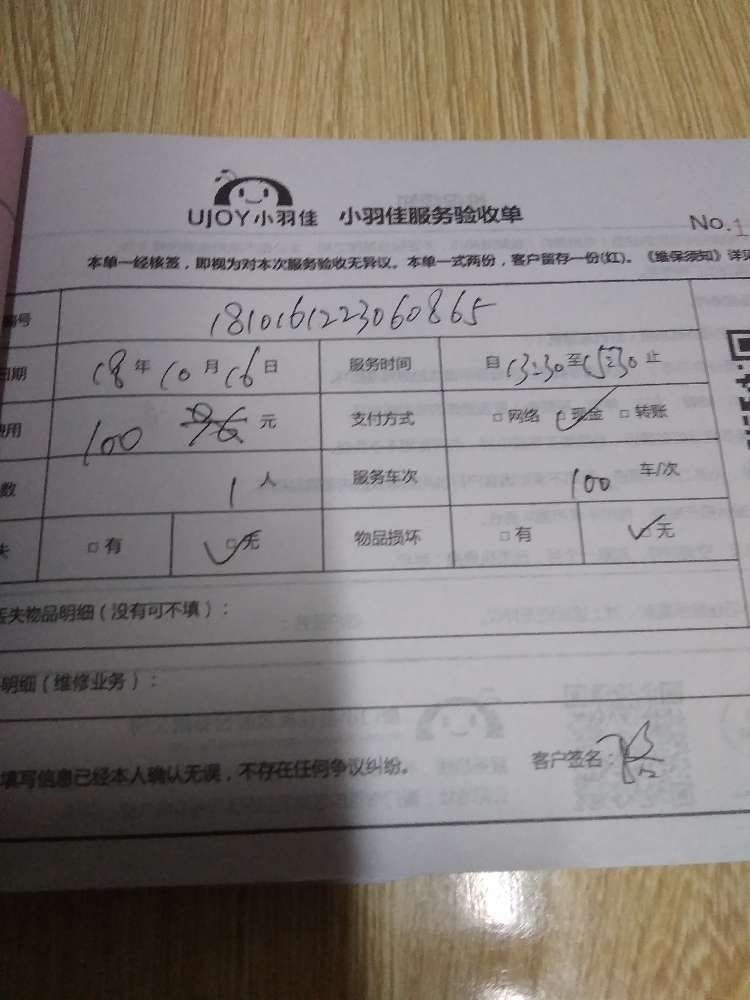 UJOY小羽佳 小羽佳服务验收单
No.1
本单一经核签，即视为对本次服务验收无异议。本单一式两份，客户留存一份(红)。《维保须知》详见
编号 1810161223060865
日期 18年10月16日 服务时间 自13:30至15:30止
费用 100 96 元 支付方式 □网络 □现金 □转账
数 1人 服务车次 100 车/次
失 □有 □无 物品损坏 □有 □无
丢失物品明细（没有可不填）：
明细（维修业务）：
填写信息已经本人确认无误，不存在任何争议纠纷。 客户签名：